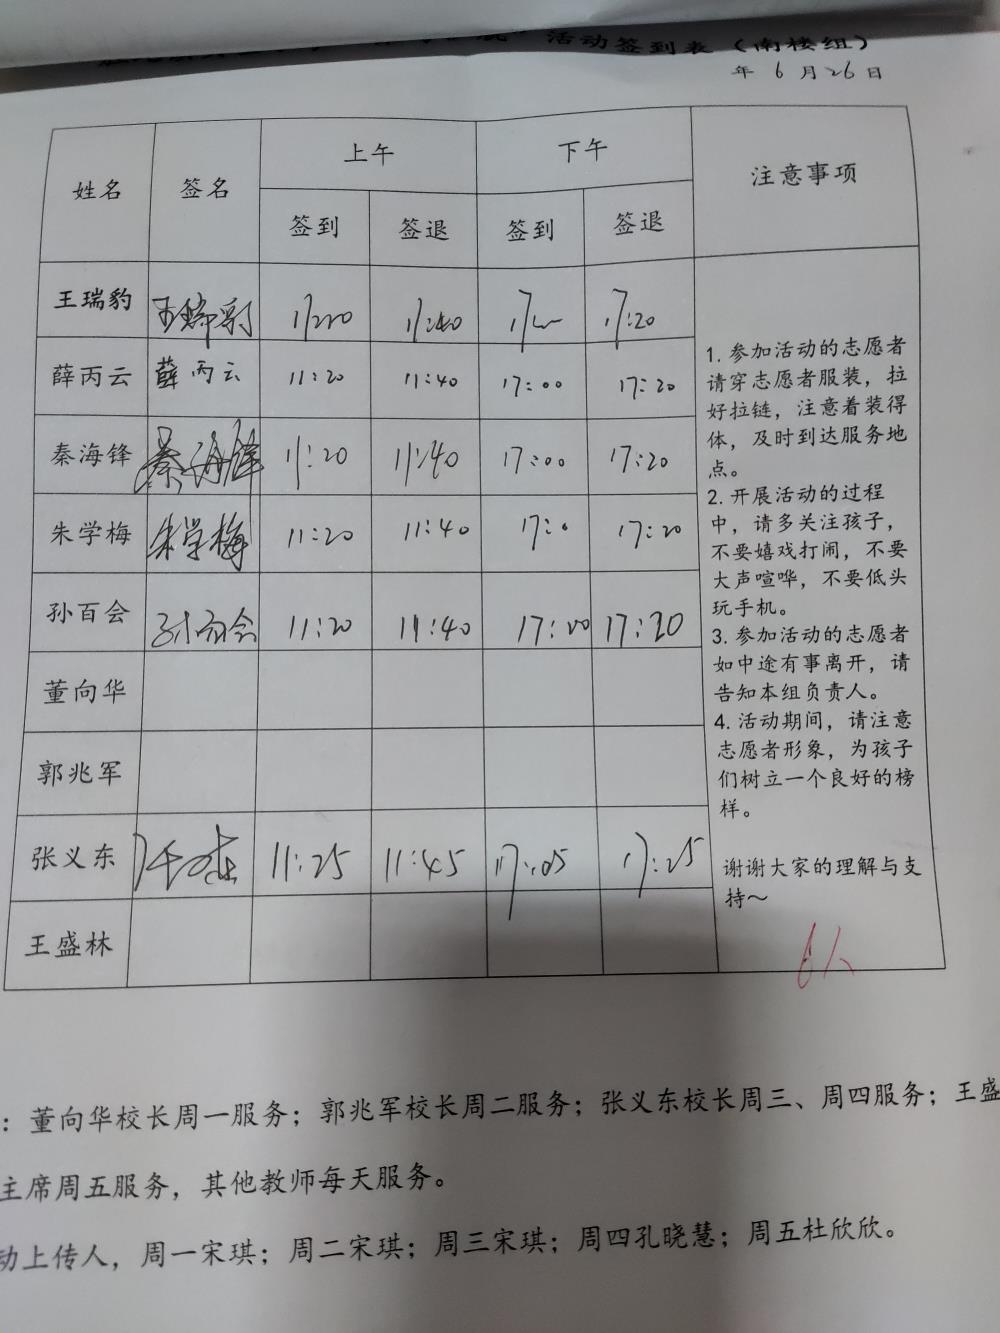 ”活动签到表（南楼组）
年 6 月 26 日
姓名 签名 上午 下午 注意事项
签到 签退 签到 签退
王瑞豹 王瑞豹 11:20 11:40 17:20
薛丙云 薛丙云 11:20 11:40 17:00 17:20
秦海锋 秦海锋 11:20 11:40 17:00 17:20
朱学梅 朱学梅 11:20 11:40 17:0 17:20
孙百会 孙百会 11:20 11:40 17:00 17:20
董向华
郭兆军
张义东 11:25 11:45 17:05 17:25
王盛林
1. 参加活动的志愿者
请穿志愿者服装，拉
好拉链，注意着装得
体，及时到达服务地
点。
2. 开展活动的过程
中，请多关注孩子，
不要嬉戏打闹，不要
大声喧哗，不要低头
玩手机。
3. 参加活动的志愿者
如中途有事离开，请
告知本组负责人。
4. 活动期间，请注意
志愿者形象，为孩子
们树立一个良好的榜
样。
谢谢大家的理解与支
持～
6人
：董向华校长周一服务；郭兆军校长周二服务；张义东校长周三、周四服务；王盛
主席周五服务，其他教师每天服务。
动上传人，周一宋琪；周二宋琪；周三宋琪；周四孔晓慧；周五杜欣欣。